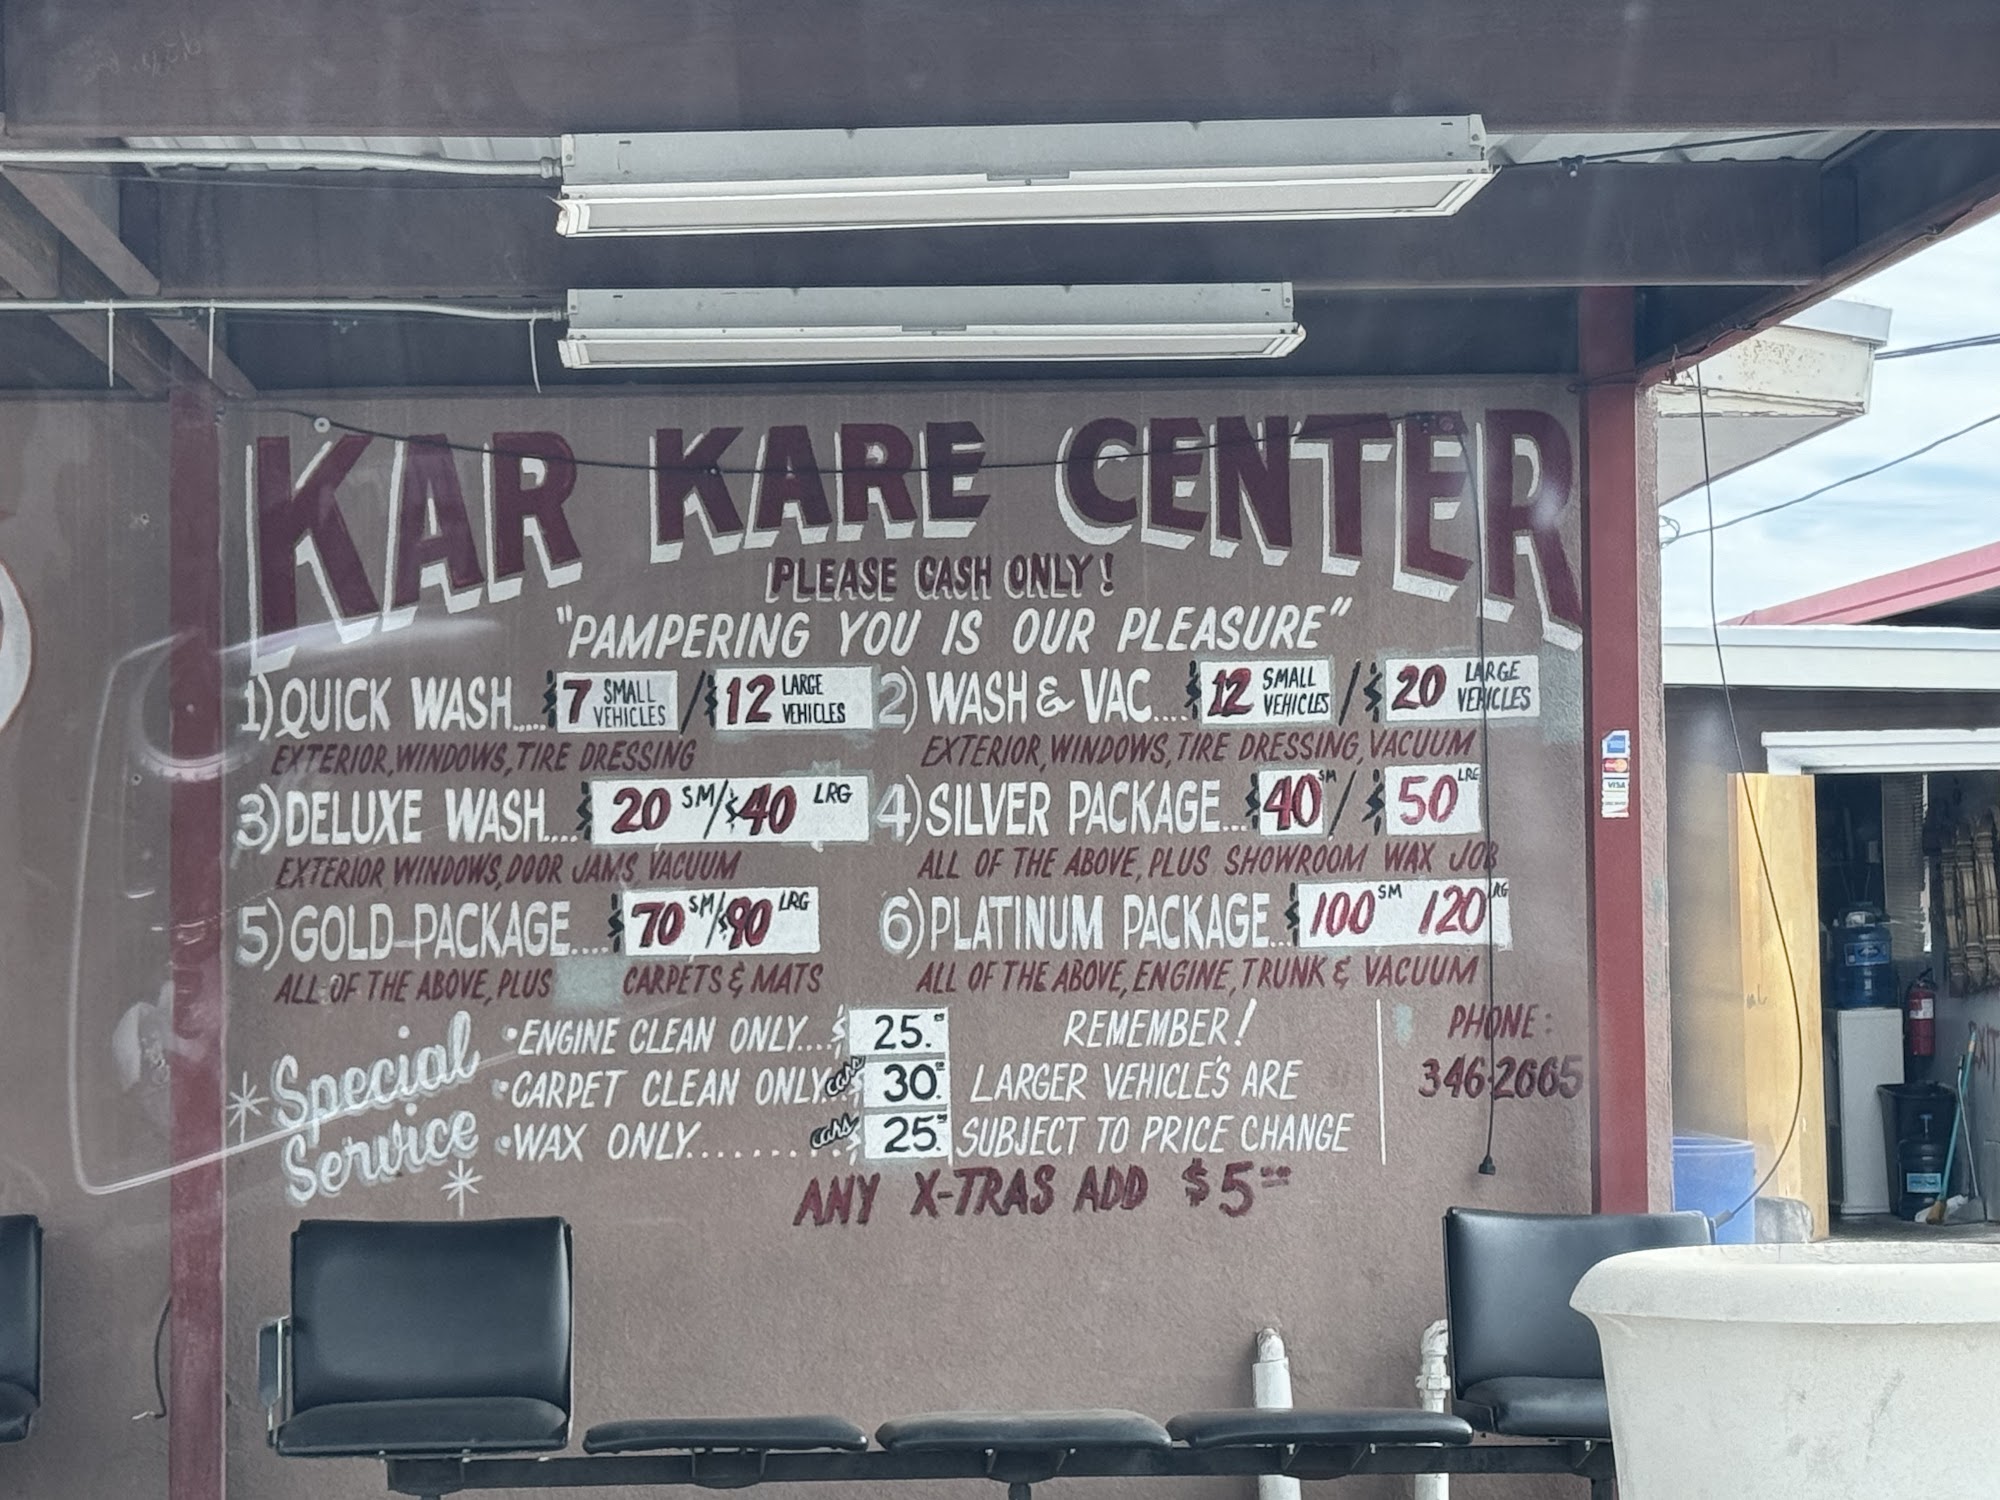 KAR KARE CENTER
PLEASE CASH ONLY!
"PAMPERING YOU IS OUR PLEASURE"
1) QUICK WASH..... $7 SMALL VEHICLES / $12 LARGE VEHICLES
EXTERIOR, WINDOWS, TIRE DRESSING
2) WASH & VAC.... $12 SMALL VEHICLES / $20 LARGE VEHICLES
EXTERIOR, WINDOWS, TIRE DRESSING, VACUUM
3) DELUXE WASH.... $20 SM/$40 LRG
EXTERIOR WINDOWS, DOOR JAMS, VACUUM
4) SILVER PACKAGE... $40 SM / $50 LRG
ALL OF THE ABOVE, PLUS SHOWROOM WAX JOB
5) GOLD PACKAGE.... $70 SM/$90 LRG
ALL OF THE ABOVE, PLUS CARPETS & MATS
6) PLATINUM PACKAGE... $100 SM 120 LRG
ALL OF THE ABOVE, ENGINE, TRUNK & VACUUM
Special Service
•ENGINE CLEAN ONLY.... $ 25.
•CARPET CLEAN ONLY.. cars $ 30.
•WAX ONLY......... cars $ 25.
REMEMBER!
LARGER VEHICLE'S ARE
SUBJECT TO PRICE CHANGE
PHONE:
346-2665
ANY X-TRAS ADD $5.00
VISA